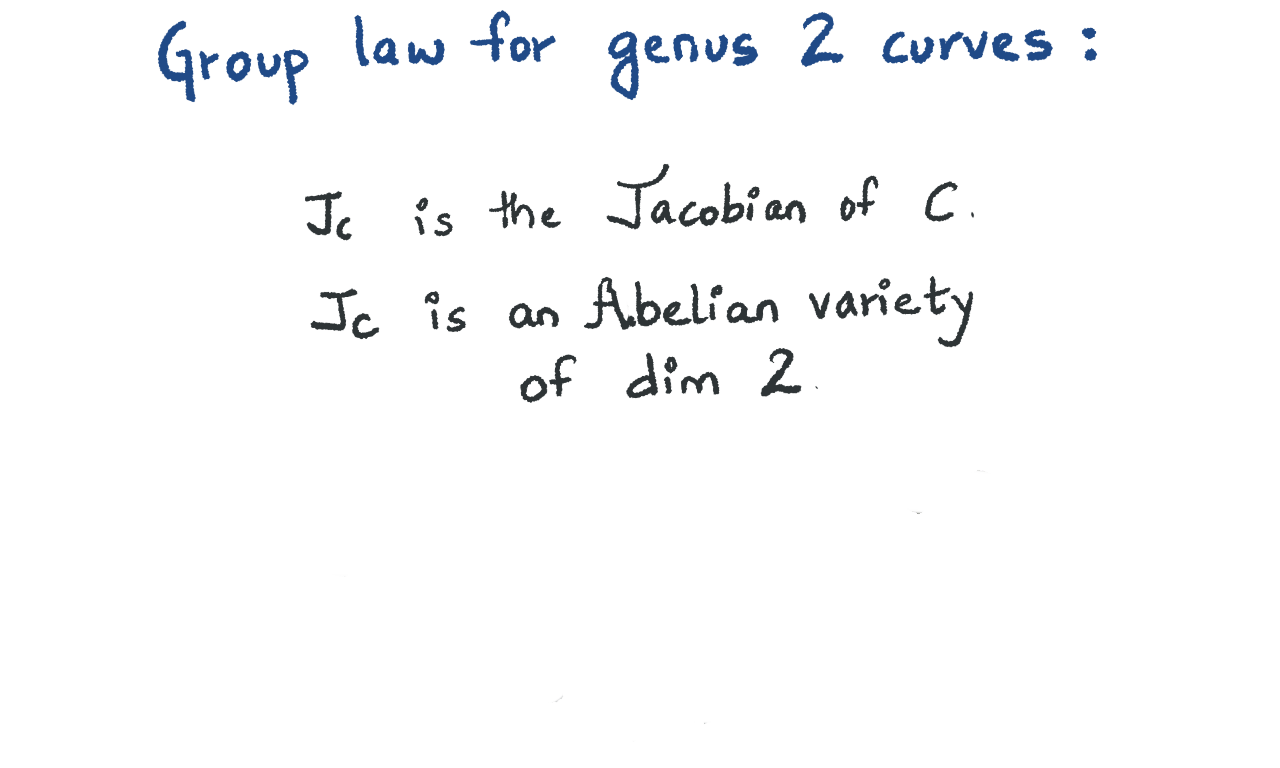 Group law for genus 2 curves :
J_C is the Jacobian of C.
J_C is an Abelian variety
of dim 2.